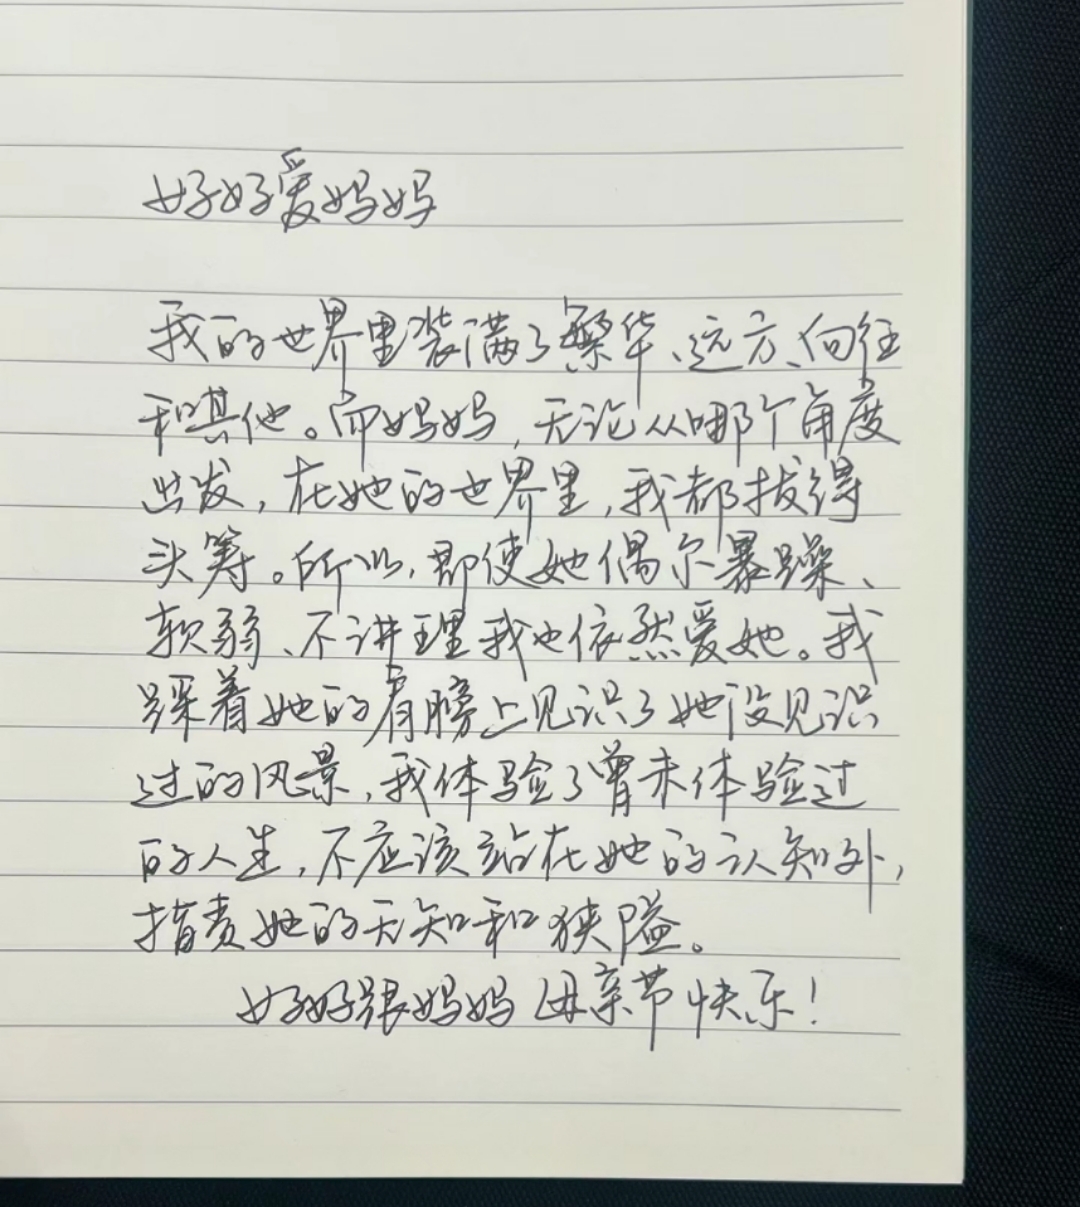 好好爱妈妈
我的世界里装满了繁华、远方、向往
和其他。而妈妈,无论从哪个角度
出发,在她的世界里,我都拔得
头筹。所以,即使她偶尔暴躁、
软弱、不讲理我也依然爱她。我
踩着她的肩膀上见识了她没见识
过的风景,我体验了曾未体验过
的人生,不应该站在她的认知外,
指责她的无知和狭隘。
好好跟妈妈 母亲节快乐!